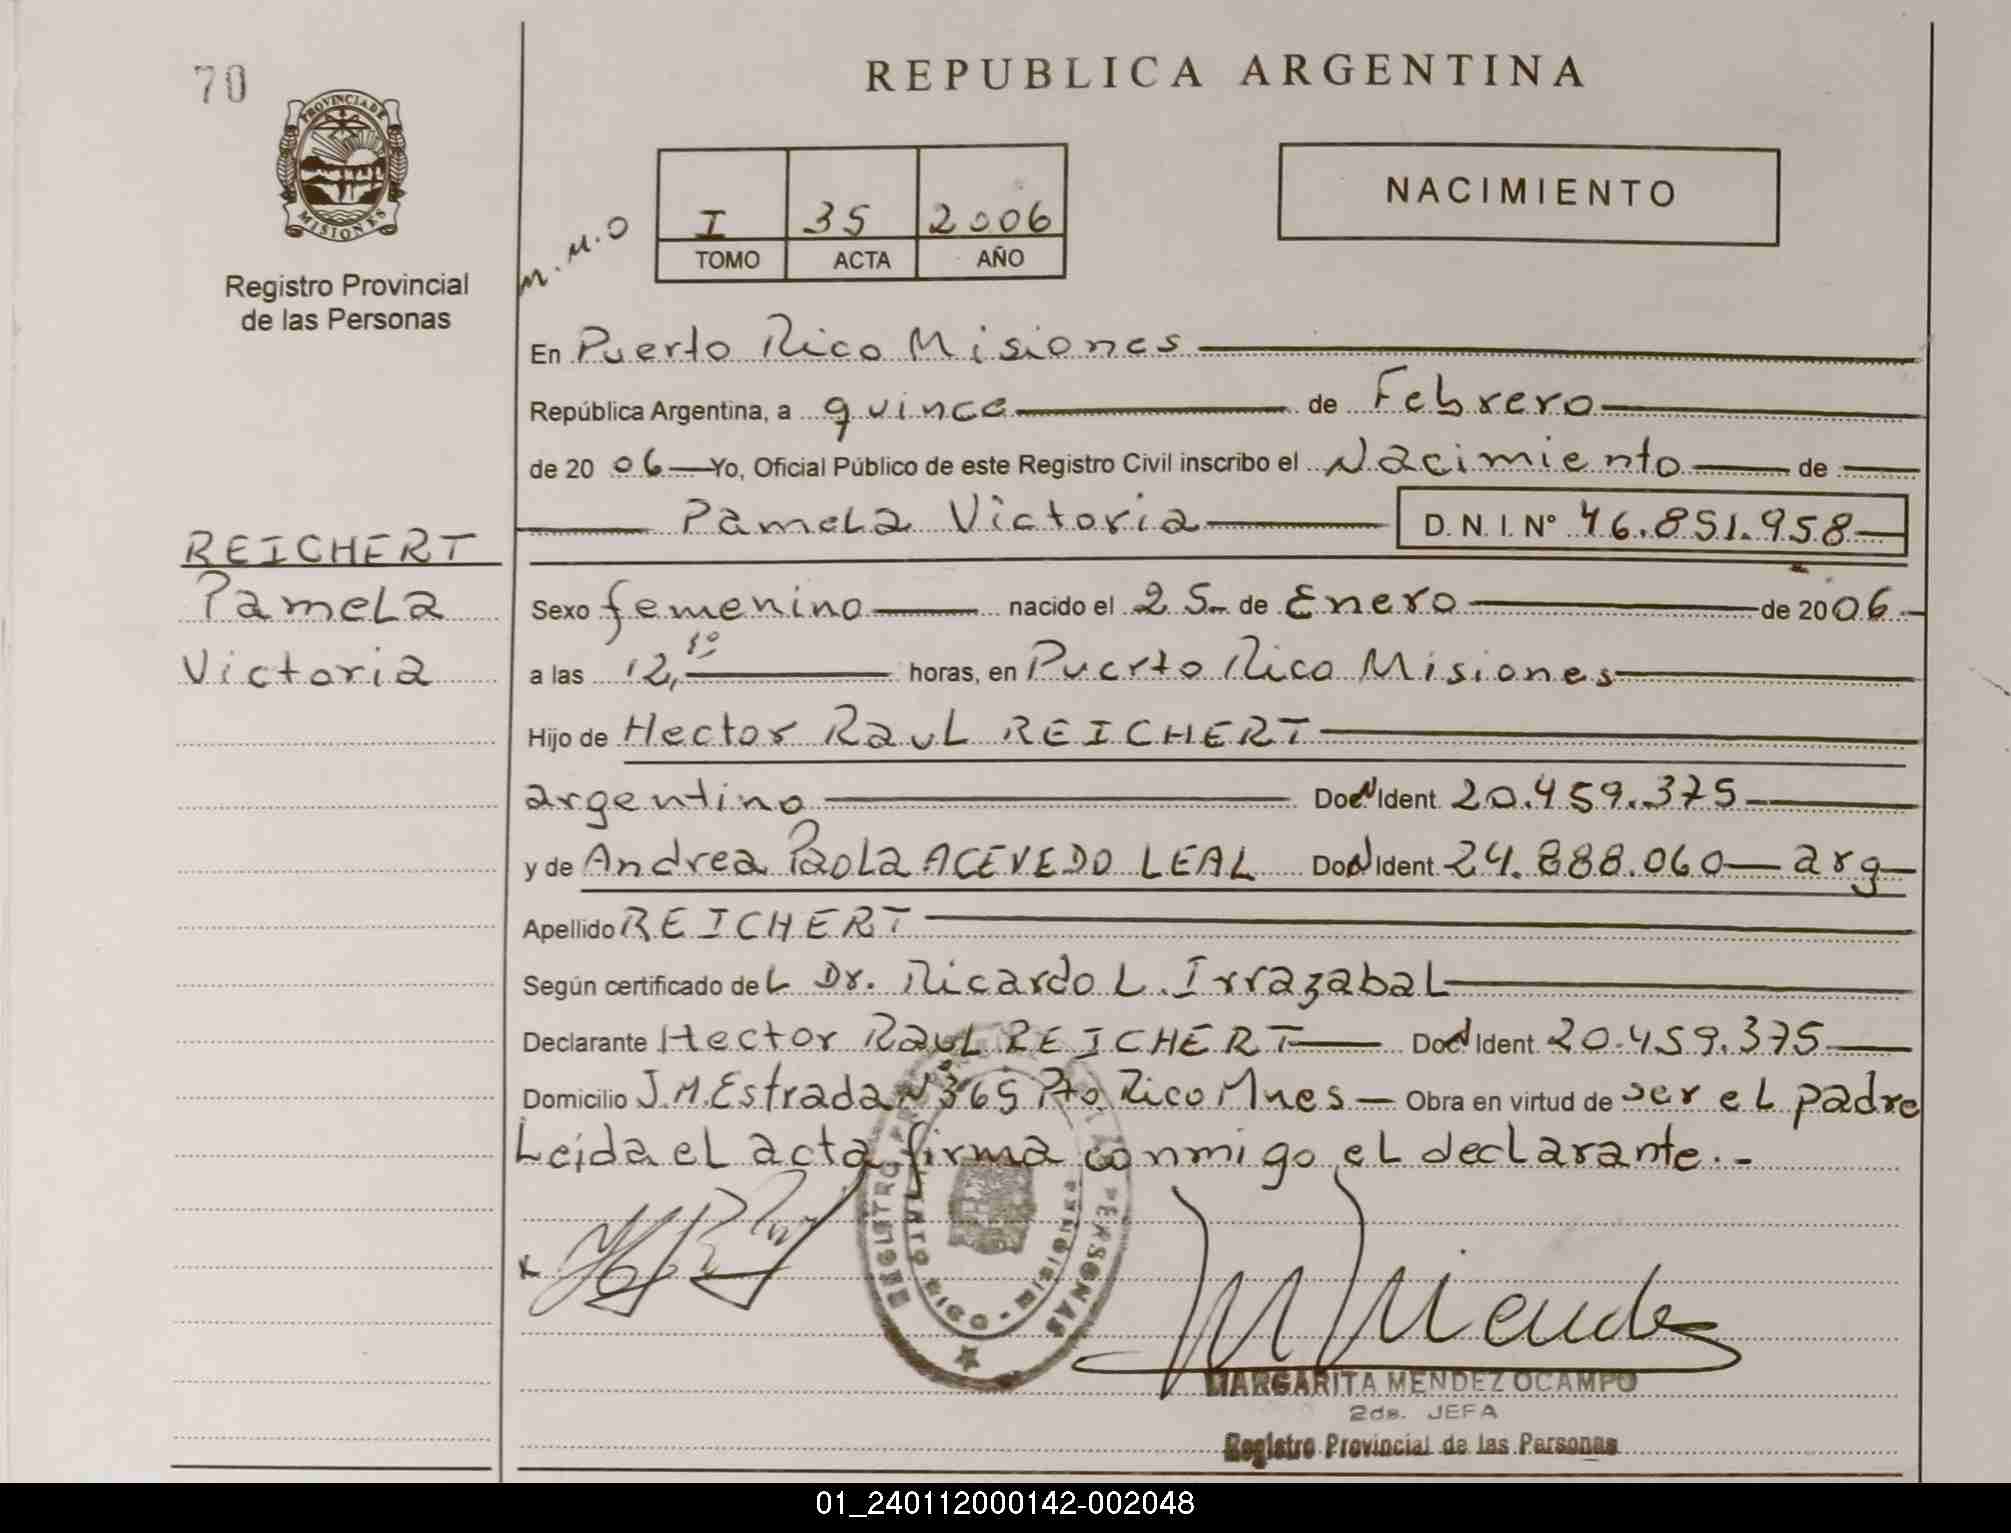 70
REPUBLICA ARGENTINA
PROVINCIA DE
MISIONES
Registro Provincial
de las Personas
M.M.O
I 35 2006
TOMO ACTA AÑO
NACIMIENTO
En Puerto Rico Misiones
República Argentina, a quince de Febrero
de 2006 Yo, Oficial Público de este Registro Civil inscribo el Nacimiento de
Pamela Victoria D. N. I. N° 46.851.958
REICHERT
Pamela
Victoria
Sexo femenino nacido el 25 de Enero de 2006
a las 12, horas, en Puerto Rico Misiones
Hijo de Hector Raul REICHERT
argentino Doc Ident 20.459.375
y de Andrea Paola ACEVEDO LEAL Doc Ident 24.888.060 arg
Apellido REICHERT
Según certificado del Dr. Ricardo L. Irrazabal
Declarante Hector Raul REICHERT Doc Ident 20.459.375
Domicilio J.M.Estrada N° 365 Pto. Rico Mnes Obra en virtud de ser el padre
Leida el acta firma conmigo el declarante.-
MMendez
MARGARITA MENDEZ OCAMPO
2da. JEFA
Registro Provincial de las Personas
01_240112000142-002048